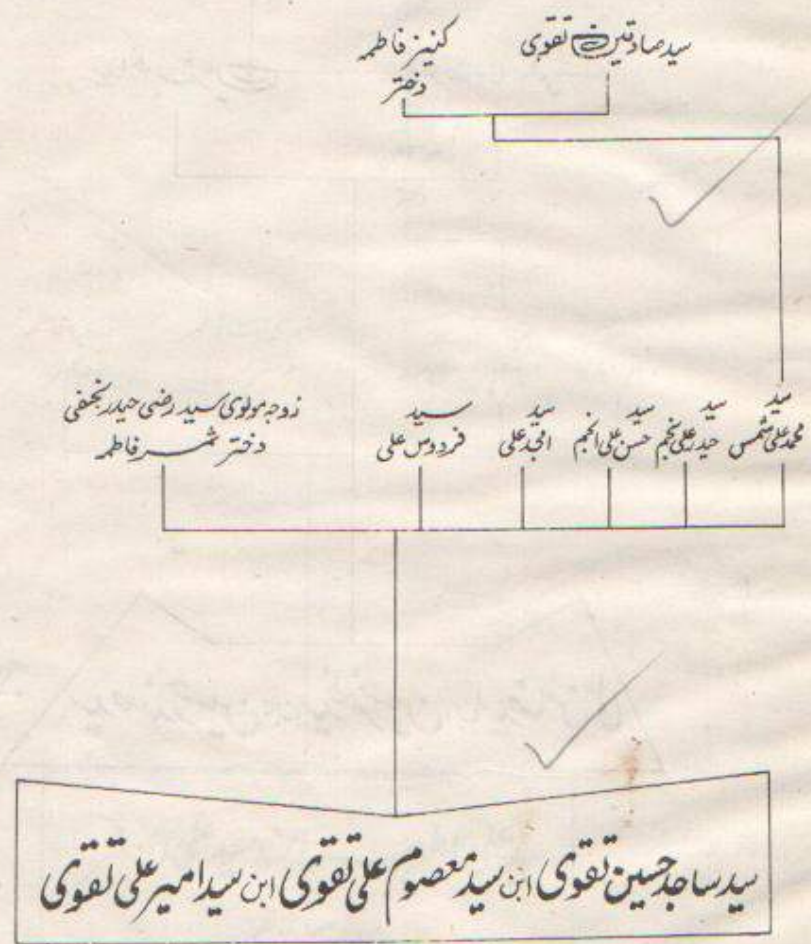 سید صادقین تقوی
کنیز فاطمہ
دختر
سید محمد علی شمس
سید حیدر علی نجم
سید حسن علی انجم
سید امجد علی
سید فردوس علی
زوجہ مولوی سید رضی حیدر نجفی
دختر ثمر فاطمہ
سید ساجد حسین تقوی ابن سید معصوم علی تقوی ابن سید امیر علی تقوی